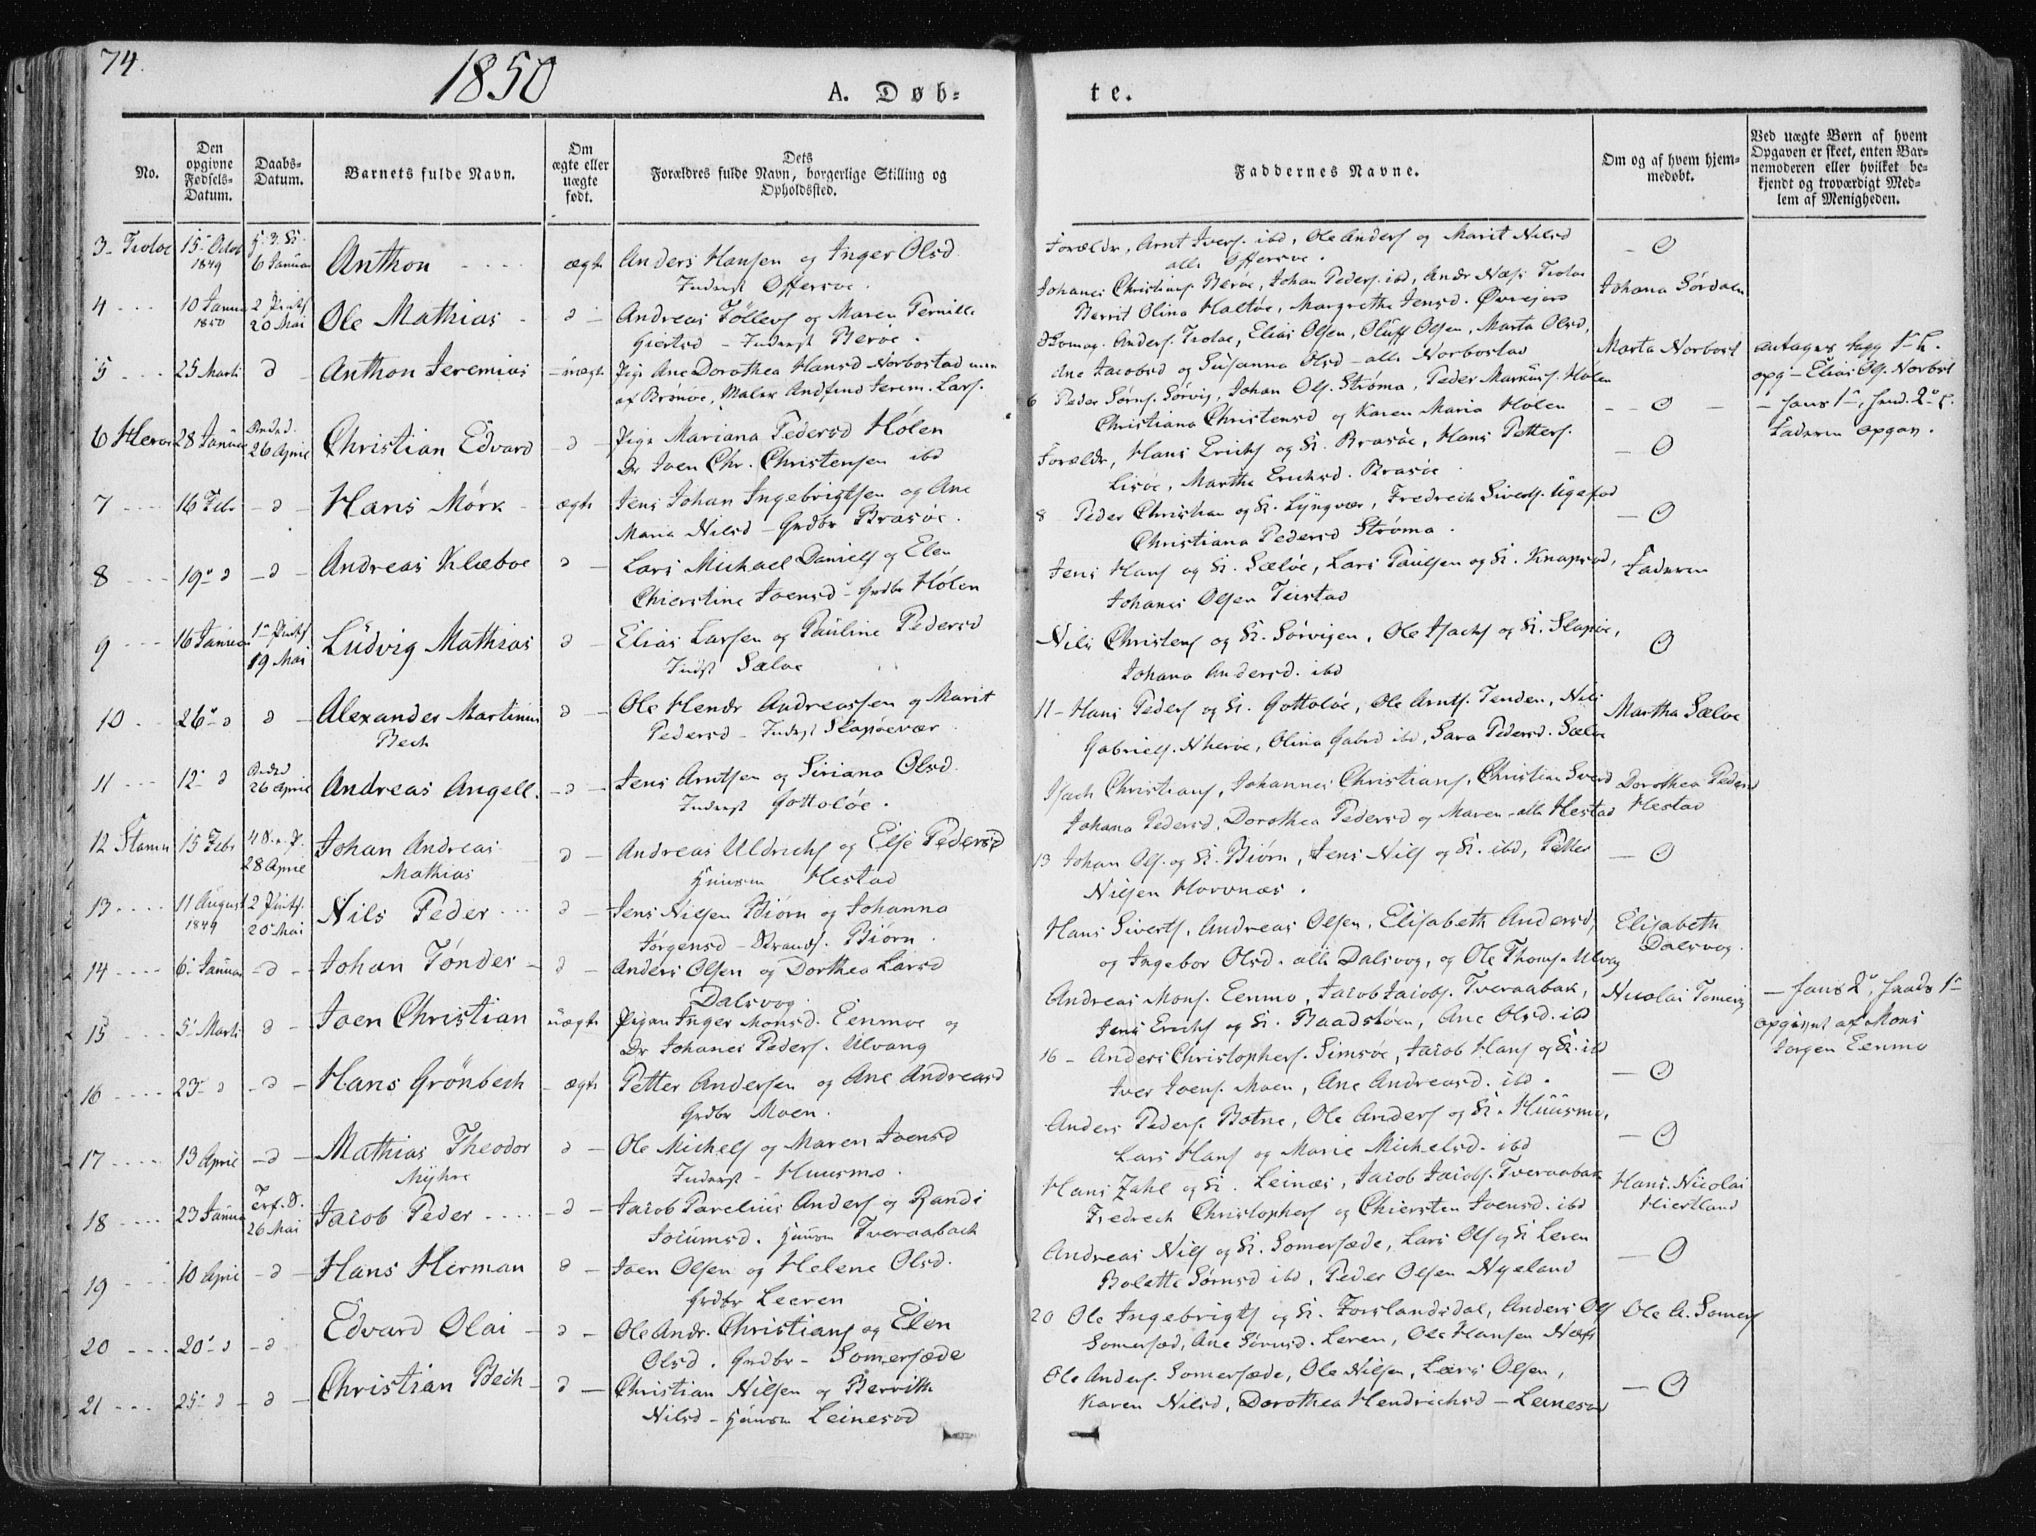 74.
1850
A. Døb-
te.
No.
Den opgivne Fødsels-Datum.
Daabs-Datum.
Barnets fulde Navn.
Om ægte eller uægte født.
Dets Forældres fulde Navn, borgerlige Stilling og Opholdssted.
Faddernes Navne.
Om og af hvem hjemmedøbt.
Ved uægte Børn af hvem Opgaven er skeet, enten Barnemoderen eller hvilket bekjendt og troværdigt Medlem af Menigheden.
3 - 15 Octob 1849 6 Januar Anthon ægte Anders Hansen og Inger Olsd
Inderst Offersøe.
Forældr, Arnt Ivers. ibd, Ole Anders og Marit Nilsd
alle Offersøe. - O
4 10 Janua 1850 20 Mai Ole Mathias - d - Andreas Tøllefs og Maren Pernille
Inderst Herøe.
Johanes Christians Herøe, Johan Peders. ibd,
Berrit Olina Haltøe, Margrethe Jensd. Øvrejord
Johana Sørdaen
5 25 Marti - d - Anthon Jeremias - uægte Pige Ane Dorothea Hansd Norbostad
af Brønøe, Maler Jerem. Lars.
Anders. Elias Olsen, Oluff Olsen, Marta Olsd,
Ane Jacobsd og Susanna Olsd - alle Norbostad
Marta Norbost
opg - Elias Ols. Norbst
6 Herøe 28 Januar 26 April Christian Edvard - d - Pige Mariana Pedersd Holen
Dr Joen Chr. Christensen ibd
6 Peder Sørns. Sørvig, Johan Ols. Strøma, Peder Markuus. Holen
Christiana Christensd og Karen Maria Holen
- O -
- hans 1n, hend. 2n L.
Faderen opgav.
7 16 Febr - d - Hans Mørk - ægte Jens Johan Ingebrigtsen og Ane
Maria Nilsd - Grdbr Brasøe.
Forældr, Hans Erichs og K. Brasøe, Hans Petters.
Lisøe, Martha Erichsd. Brasøe. - O
8 19n d - d - Andreas Klæboe d - Lars Michael Daniels og Elen
Chierstine Joensd - Grdbr Holen
8 - Peder Christian og K. Lyngvær, Fredrech Siverts.
Christiana Pedersd Strøma. - O
9 16 Januar 1n Pints 19 Mai Ludvig Mathias d - Elias Larsen og Pauline Pedersd
Indst Sæløe
Jens Hans og K. Sæløe, Lars Paulsen og K.
Johanes Olsen Teistad
Faderen
10 26n d d - Alexander Martinus
Bech d - Ole Hendr Andreassen og Marit
Pedersd - Inderst Slapøevær
Nils Christens og K. Sørvigen, Ole Isachs og K. Slapøe,
Johana Andersd. ibd
O
11 12n d 26 April Andreas Angell. - d - Jens Arntsen og Siriana Olsd.
Inderst Gottoløe.
11 - Hans Peders og K. Gottoløe, Ole Arnts. Tenden, Nils
Gabriels. Nherøe, Olina Gabrsd ibd, Sara Pedersd. Sæløe
Martha Sæløe
12 Stamn 15 Febr 28 April Johan Andreas
Mathias d - Andreas Uldrichs og Else Pedersd
Huusm Hestad
Isach Christians, Johannes Christians, Christian
Johana Pedersd, Dorothea Pedersd og Maren alle Hestad
Dorothea Pedersd
Hestad
13 11 August 1849 2 Pints. 20 Mai Nils Peder d - Jens Nilsen Biørn og Johanna
Jørgensd - Strands. Biørn.
13 Johan Ols. og K. Biørn, Jens Nils og K. ibd, Petter
Nilsen Horvnæs. - O
14 6n Januar - d - Johan Tønder - d - Anders Olsen og Dorthea Larsd
Dalsvog.
Hans Siverts. Andreas Olsen. Elisabeth Andersd,
og Ingebor Olsd. alle Dalsvog, og Ole Thoms. Ulvag
Elisabeth
Dalsvog.
15 5n Marti d - Joen Christian uægte Pigen Inger Monsd. Eenmoe og
Dr Johanes Peders. Ulvang
Andreas Mons. Eenmo, Jacob Jacobs. Tveraabak,
Jens Erichs og K. Baadstøen, Ane Olsd. ibd
Nicolai
- hans 2n, hends 1n
opgivet af Mons
Jørgen Eenmo
16 23n d - d - Hans Grønbech - ægte Petter Andersen og Ane Andreasd
Grdbr Moen.
16 - Anders Christophers. Simsøe, Jacob Hans og K. ibd
Iver Joens. Moen, Ane Andreasd. ibd. - O
17 13 April - d - Mathias Theodor
Myhre d - Ole Michels og Maren Joensd
Inderst - Huusmo.
Anders Peders. Botne, Ole Anders og K. Huusmo,
Lars Hans og Marie Michelsd. ibd - O
18 23 Janua Tref. S. 26 Mai Jacob Peder - d - Jacob Parelius Anders og Randi
Joensd. Huusm Tveraabach
Hans Zahl og K. Leinæs, Jacob Jacobs. Tveraabak
Fredrech Christophers og Chiersten Joensd. ibd
Hans Nicolai
Hiertland
19 10 April - d - Hans Herman d - Joen Olsen og Helene Olsd.
Grdbr Leeren
Andreas Nils og K. Somersæde, Lars Ols og K Leren
Bolette Sørnsd ibd, Peder Olsen Nyeland - O
20 20n d - d Edvard Olai - d - Ole Andr. Christians og Elen
Olsd. Grdbr - Somersæde
20 Ole Ingebrigts og K. Forslandsdal, Anders Ols
Somersæd, Ane Sørnsd. Leren, Ole Hansen Næss
Ole A. Somers
21 25n d - d - Christian Bech - d - Christian Nilsen og Berrith
Nilsd - Huusm Leinesod
Ole Anders. Somersæde, Ole Nilsen, Lars Olsen,
Karen Nilsd, Dorothea Hendrichsd - Leinesod - O